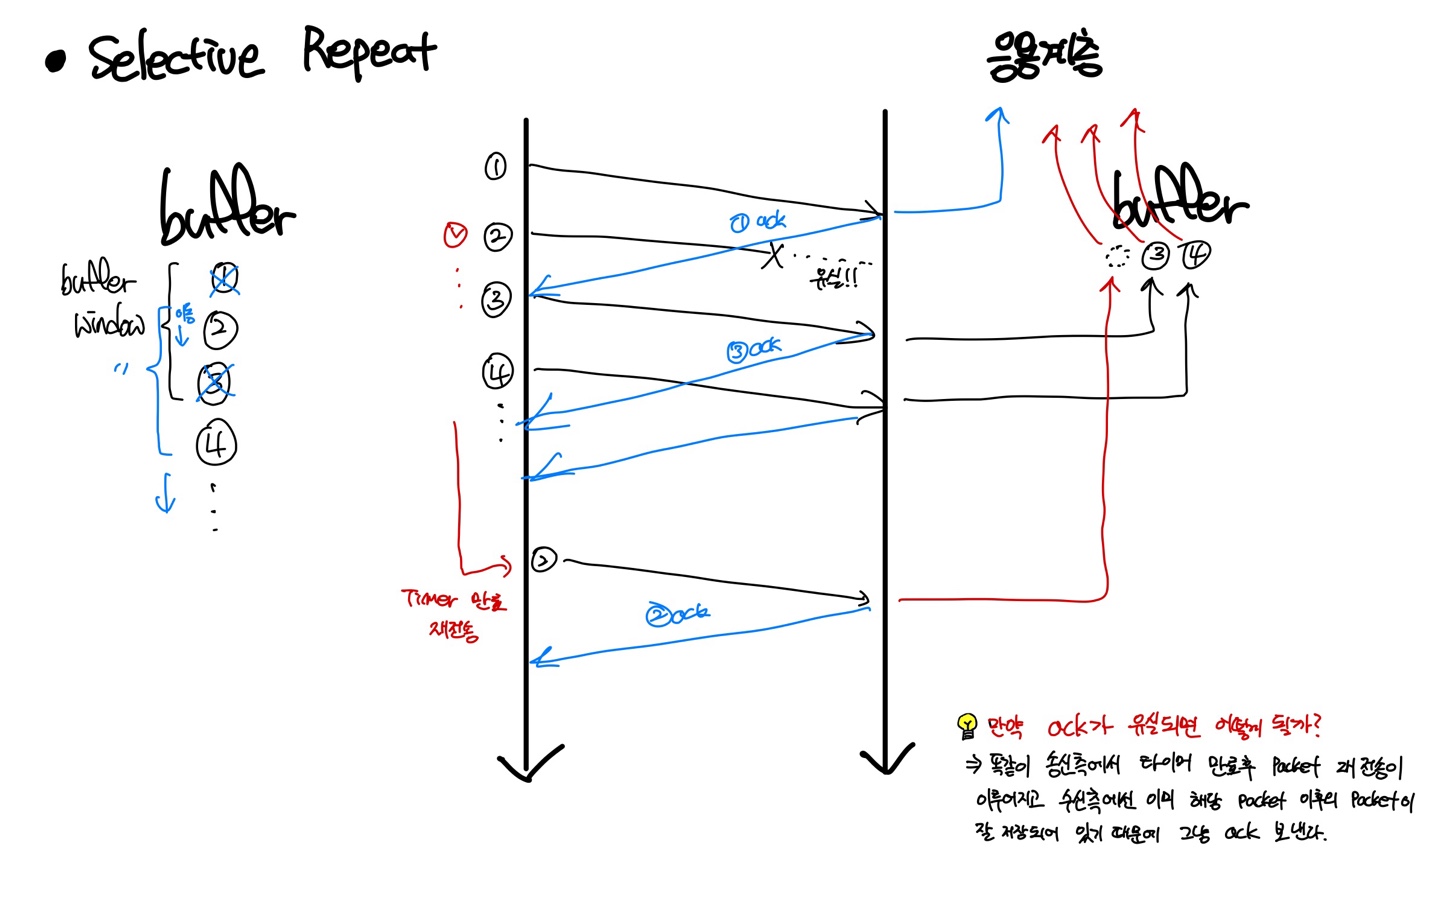 • Selective Repeat
응용계층
buffer
buffer
window
〃
① 
② 
③ 
④
이동
①
② 
③
④
① ack
유실!!
③ ack
Timer 만료
재전송
②
② ack
buffer
③ ④
만약 ack가 유실되면 어떻게 될까?
⇒ 똑같이 송신측에서 타이머 만료후 Packet 재전송이
이루어지고 수신측에선 이미 해당 packet 이후의 Packet이
잘 저장되어 있기 때문에 그냥 ack 보낸다.